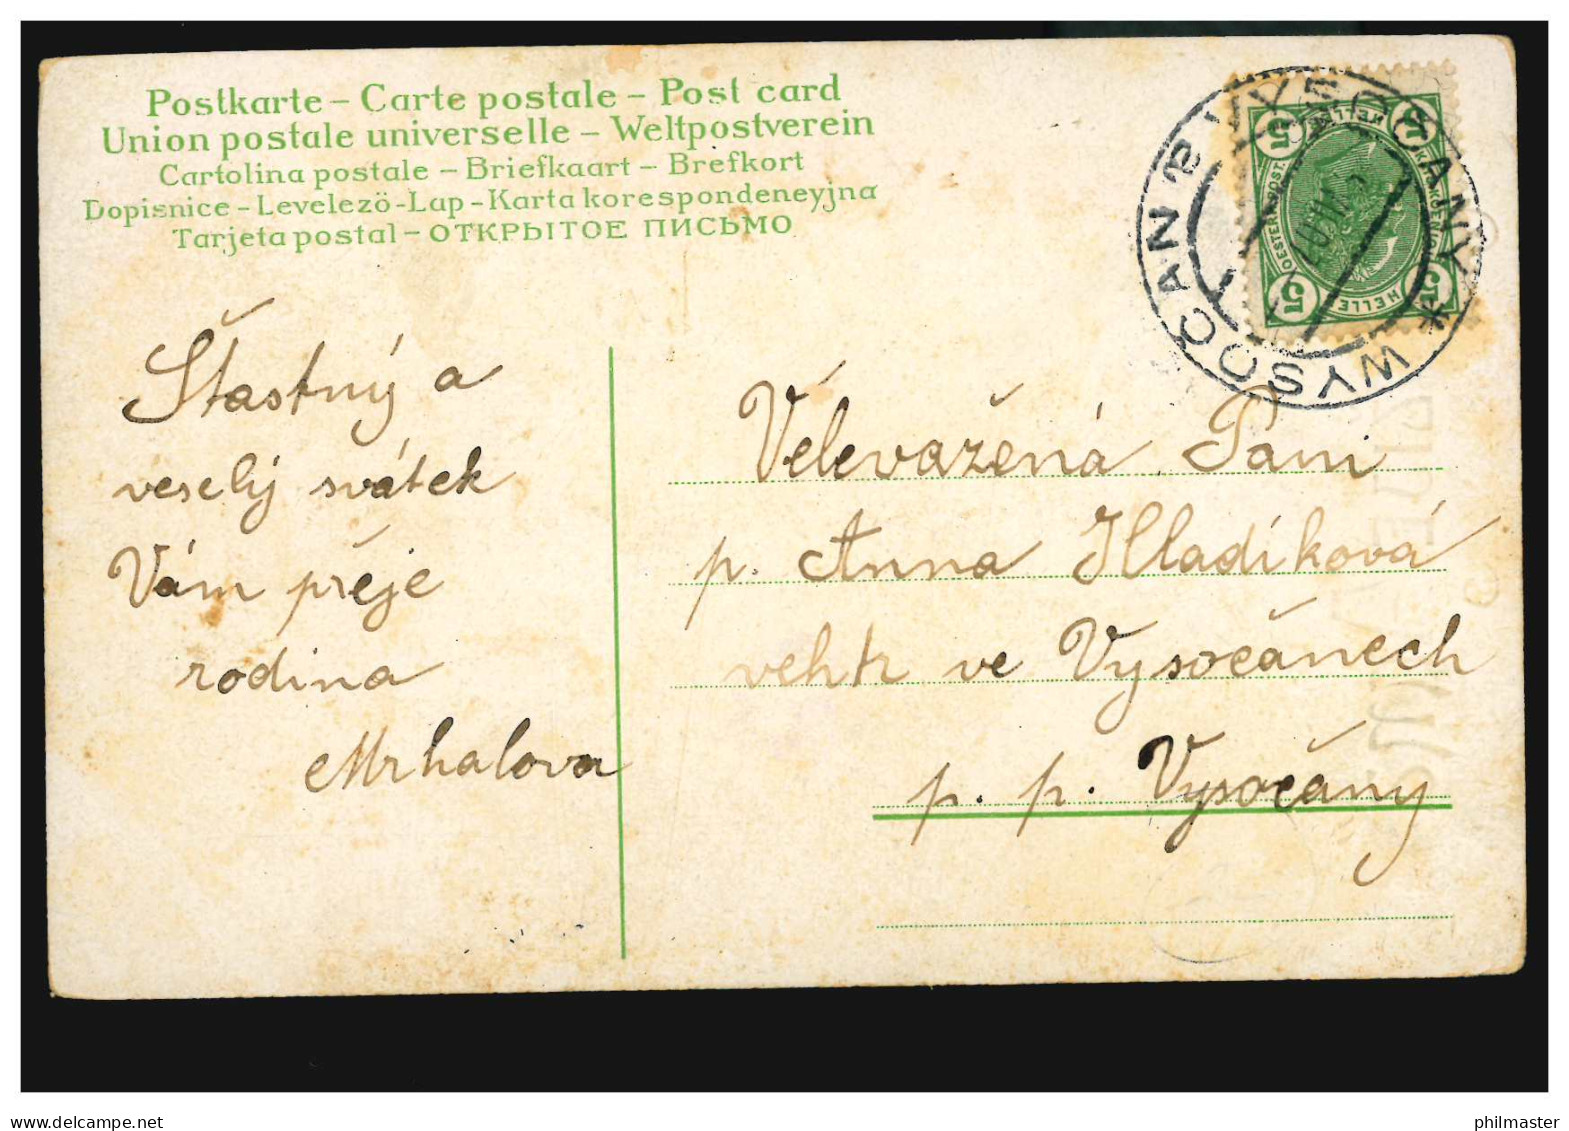 Postkarte – Carte postale – Post card
Union postale universelle – Weltpostverein
Cartolina postale – Briefkaart – Brefkort
Dopisnice – Levelezö-Lap – Karta korespondeneyjna
Tarjeta postal – ОТКРЫТОЕ ПИСЬМО
VYSOČANY * WYSOČAN a
5 5
HELLER
5 5
HELLER
Šťastný a
veselý svátek
Vám přeje
rodina
Mrhalova
Velevažená Paní
p. Anna Hladíková
ve Vysočánech
p. p. Vysočány
delcampe.net
philmaster